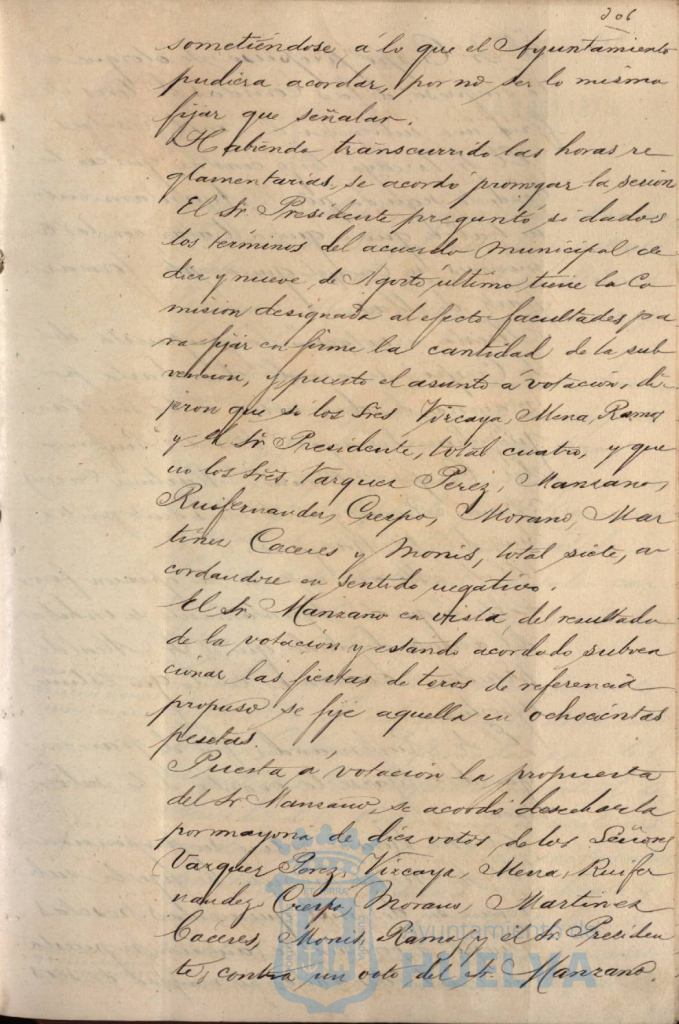 306
sometiéndose á lo que el Ayuntamiento
pudiera acordar, por no ser lo mismo
fijar que señalar.
Habiendo transcurrido las horas re
glamentarias, se acordó prorrogar la sesión
El Sr. Presidente preguntó si dados
los términos del acuerdo municipal de
diez y nueve de Agosto último tiene la Co
misión designada al efecto facultades pa
ra fijar en firme la cantidad de la sub
vención, y puesto el asunto á votación, di
jeron que si los Sres Vizcaya, Mena, Ramos
y el Sr. Presidente, total cuatro, y que
no los Sres Vazquez Perez, Manzano,
Ruifernandez, Crespo, Morano, Mar
tinez Caceres y Monis, total siete, a
cordandose en sentido negativo.
El Sr. Manzano en vista del resultado
de la votación y estando acordado subven
cionar las fiestas de toros de referencia
propuso se fije aquella en ochocientas
pesetas.
Puesta á votación la propuesta
del Sr. Manzano, se acordó desecharla
por mayoria de diez votos de los Señores
Vazquez Perez, Vizcaya, Mena, Ruifer
nandez Crespo, Morano, Martinez
Caceres, Monis, Ramos y el Sr. Presiden
te, contra un voto del Sr. Manzano.
Ayuntamiento de
HUELVA